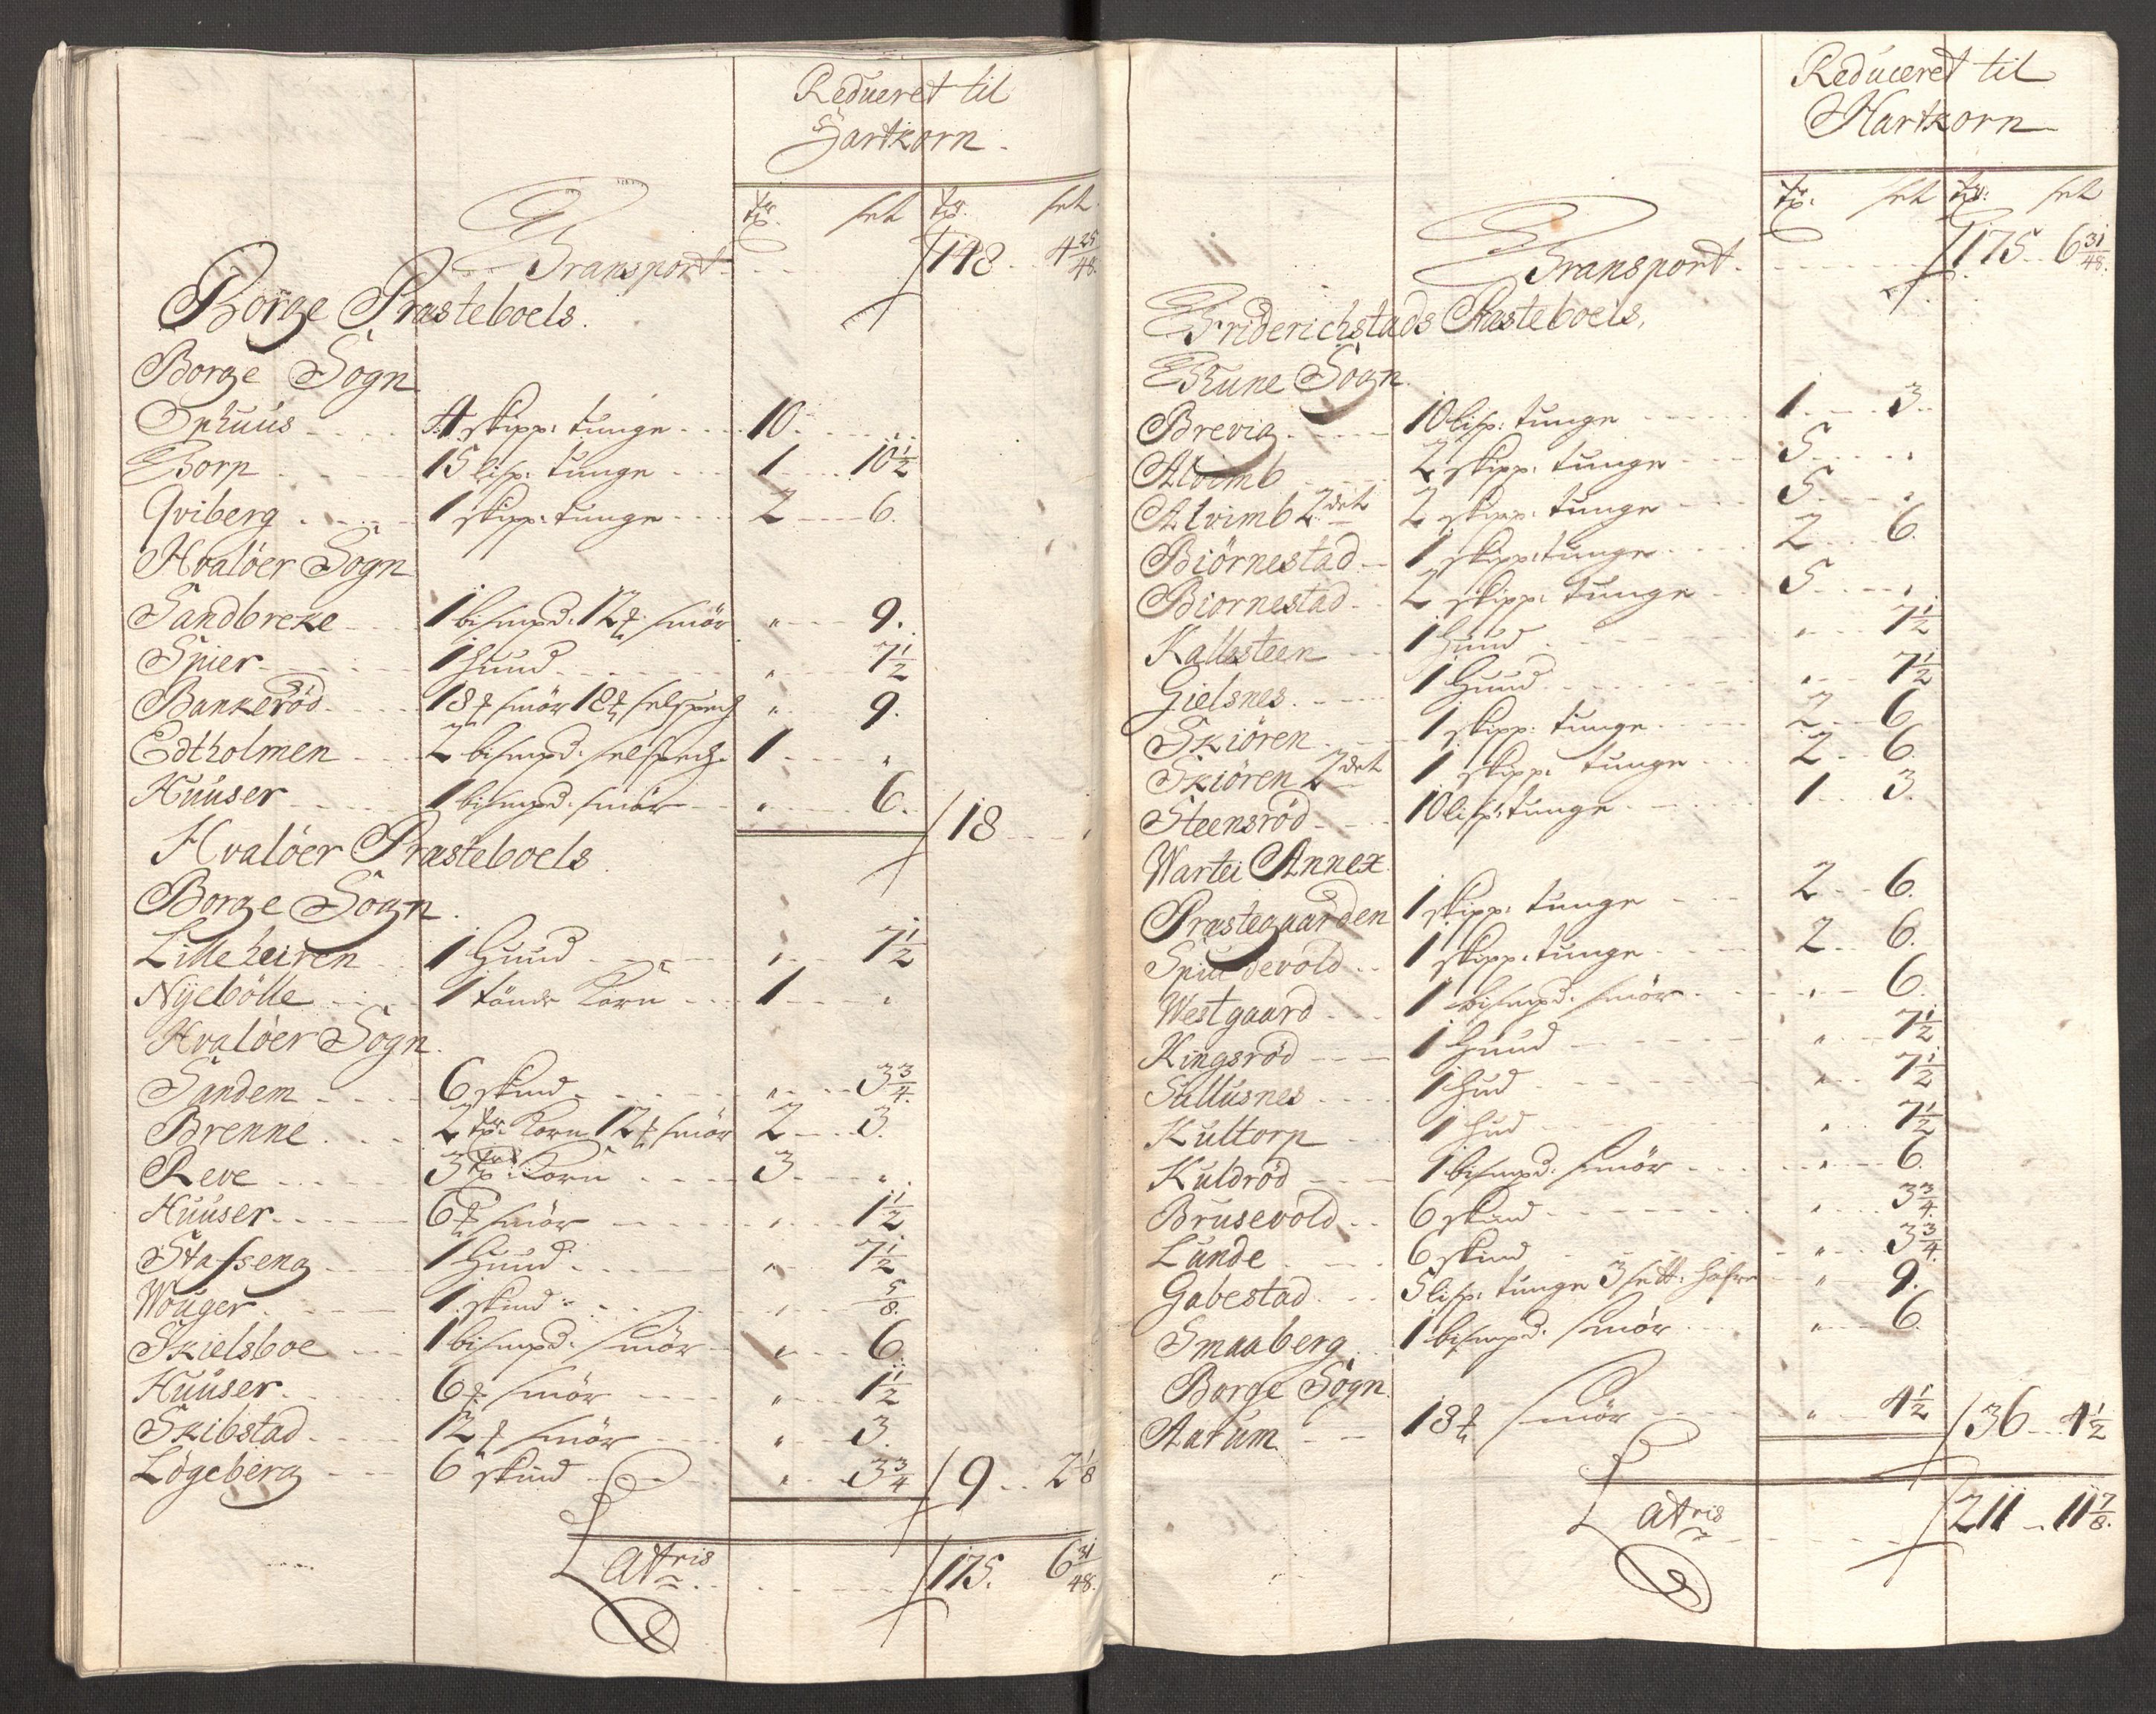 Reduceret til
Hartkorn.
tr. set tr. set
Transport 148 4 25/48.
Borge Præsteboels.
Borge Sogn
Ophuus 4 skipp: tunge 10
Borp 15 lisp: tunge 1 10 1/2
Qviberg 1 skipp: tunge 2 6.
Hvaløer Sogn
Sandbreke 1 bismpd: 12 ℔ smör " 9.
Spier 1 huud " 7 1/2
Bankerød 18 ℔ smör 18 ℔ selspech " 9.
Edtholmen 2 bismpd: selspech 1 "
Huuser 1 bismpd: smör " 6. 18 "
Hvaløer Præsteboels
Borge Sogn.
Lille heiren 1 Huud " 7 1/2
Nyebølle 1 tönde Korn 1 "
Hvaløer Sogn.
Sandem 6 skind " 3 3/4.
Brenne 2 tr: Korn 12 ℔ smör 2 3.
Reve 3 tr: Korn 3 "
Huuser 6 ℔ smör " 1 1/2
Stafseng 1 Huud " 7 1/2
Wouger 1 skind " 5/8.
Skielsboe 1 bismpd: smör " 6.
Huuser 6 ℔ smör " 1 1/2
Skibstad 12 ℔ smör " 3.
Løgeberg 6 skind " 3 3/4 9 2 1/8
Latris 175. 6 31/48.
Reduceret til
Hartkorn
tr: set tr: set
Transport. 175 6 31/48.
Friderichstads Præsteboels.
Thune Sogn.
Brevig 10 lisp: tunge 1 3.
Alvimb 2 skipp: tunge 5 "
Alvimb 2det 2 skipp: tunge 5 "
Biörnestad 1 skipp: tunge 2 6.
Biornestad 2 skipp: tunge 5 "
Kallesteen 1 huud " 7 1/2
Gielsnes 1 Huud " 7 1/2
Skiören 1 skipp: tunge 2 6
Skiören 2det 1 skipp: tunge 2 6.
Steensrød 10 lisp: tunge 1 3.
Wartei Annex.
Præstegaarden 1 skipp: tunge 2 6.
Spundevold 1 skipp: tunge 2 6.
Westgaard 1 bismpd: smör " 6.
Kingsrød 1 Huud " 7 1/2
Sullusnes 1 hud " 7 1/2
Kultorp 1 hud " 7 1/2
Kuldrød 1 bismpd: smör " 6.
Brusevold 6 skind " 3 3/4.
Lunde 6 skind " 3 3/4.
Gabestad 5 lisp: tunge 3 sett: hafre " 9.
Smaaberg 1 bismpd: smör " 6
Borge Sogn.
Aarum 18 ℔ smör " 4 1/2 36 4 1/2
Latris 211 11 7/8.